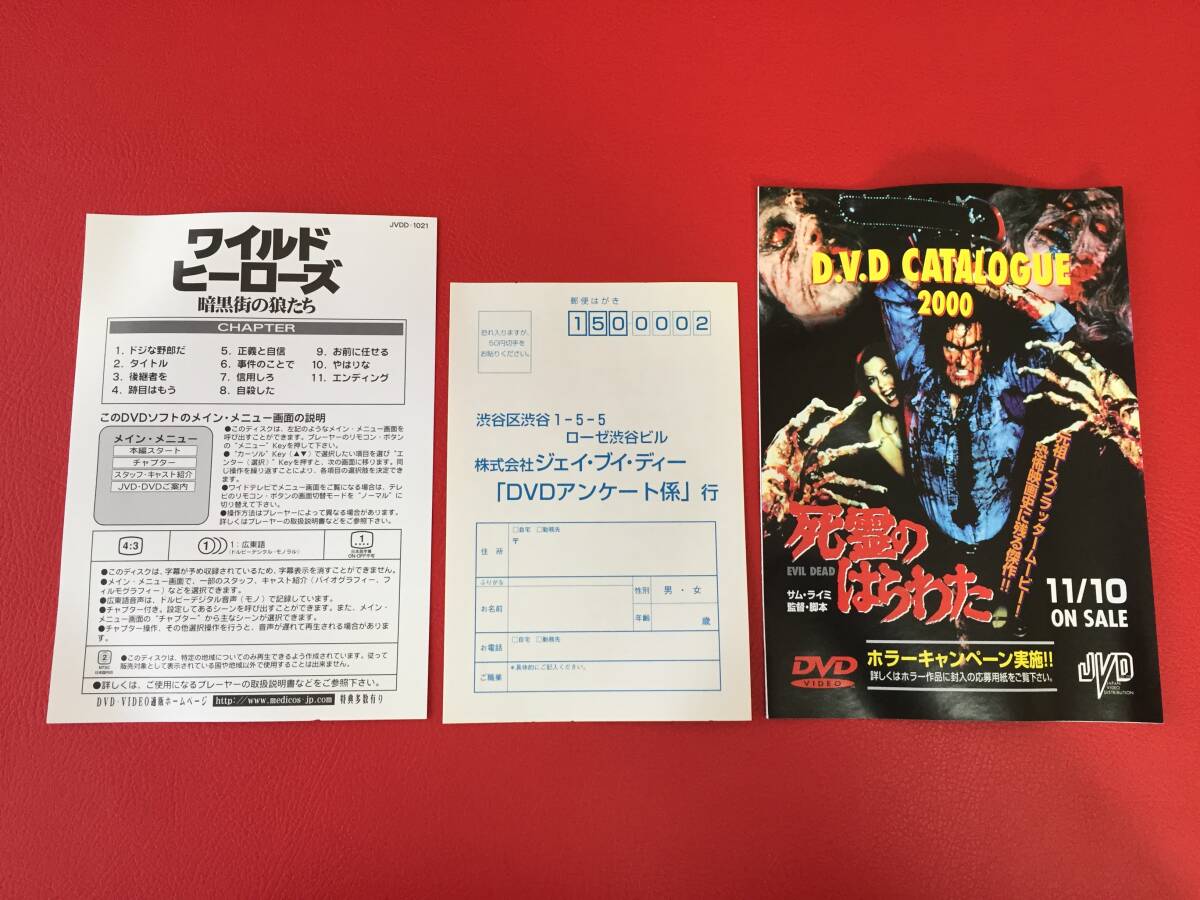 JVDD-1021
ワイルド
ヒーローズ
暗黒街の狼たち
CHAPTER
1. ドジな野郎だ
2. タイトル
3. 後継者を
4. 跡目はもう
5. 正義と自信
6. 事件のことで
7. 信用しろ
8. 自殺した
9. お前に任せる
10. やはりな
11. エンディング
このDVDソフトのメイン・メニュー画面の説明
メイン・メニュー
本編スタート
チャプター
スタッフ・キャスト紹介
JVD・DVDご案内
●このディスクは、左記のようなメイン・メニュー画面を
呼び出すことができます。プレーヤーのリモコン・ボタン
の"メニュー"Keyを押して下さい。
●"カーソル"Key(▲▼)で選択したい項目を選び"エ
ンター(選択)"Keyを押すと、次の画面に移ります。同
じ操作を繰り返すことにより、各項目の選択肢を決定でき
ます。
●ワイドテレビでメニュー画面をご覧になる場合は、テレ
ビのリモコン・ボタンの画面切替モードを"ノーマル"に
切り替えて下さい。
●操作方法はプレーヤーによって異なる場合があります。
詳しくはプレーヤーの取扱説明書などをご参照下さい。
4:3
1
1:広東語
(ドルビーデジタル・モノラル)
1
日本語字幕
ON・OFF不可
●このディスクは、字幕が予め収録されているため、字幕表示を消すことができません。
●メイン・メニュー画面で、一部のスタッフ、キャスト紹介(バイオグラフィー、フ
ィルモグラフィー)などを選択できます。
●広東語音声は、ドルビーデジタル音声(モノ)で記録しています。
●チャプター付き。設定してあるシーンを呼び出すことができます。また、メイン・
メニュー画面の"チャプター"から主なシーンが選択できます。
●チャプター操作、その他選択操作を行うと、音声が遅れて再生される場合がありま
す。
2
NTSC
日本国内向
●このディスクは、特定の地域についてのみ再生できるよう作成されています。従って
販売対象として表示されている国や地域以外で使用することは出来ません。
●詳しくは、ご使用になるプレーヤーの取扱説明書などをご参照下さい。
DVD・VIDEO通販ホームページ http://www.medicos-jp.com 特典多数有り
郵便はがき
1500002
恐れ入りますが、
50円切手を
お貼りください。
渋谷区渋谷1-5-5
ローゼ渋谷ビル
株式会社ジェイ・ブイ・ディー
「DVDアンケート係」行
住所
□自宅 □勤務先
〒
ふりがな
お名前
性別
男・女
年齢
歳
お電話
□自宅 □勤務先
ご職業
*具体的にご記入ください。
D.V.D CATALOGUE
2000
元祖!スプラッタームービー!
恐怖映画史に残る傑作!!
死霊の
はらわた
EVIL DEAD
サム・ライミ
監督・脚本
11/10
ON SALE
DVD
VIDEO
ホラーキャンペーン実施!!
詳しくはホラー作品に封入の応募用紙をご覧下さい。
JVD
JAPAN
VIDEO
DISTRIBUTION